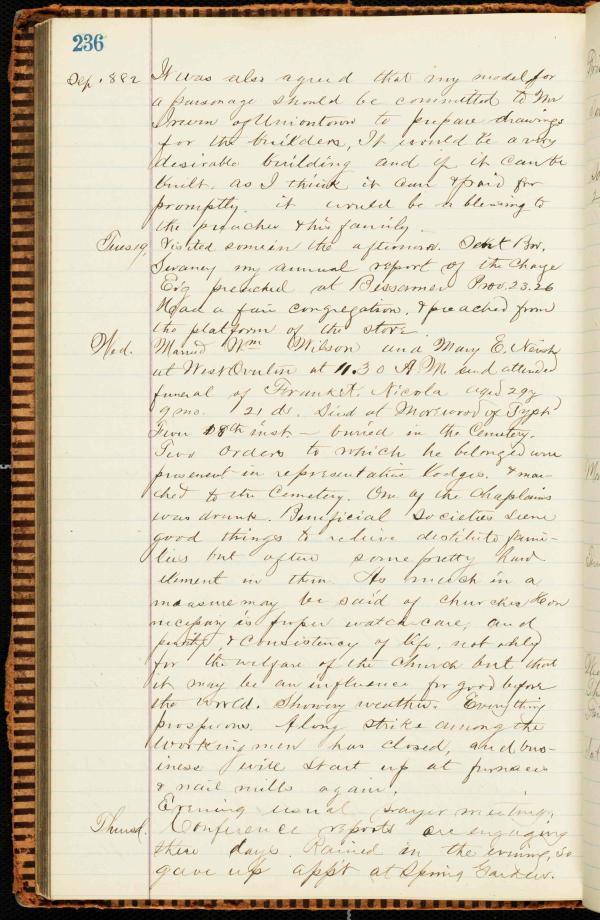 236
Sep. 1882 It was also agreed that my model for
a parsonage should be committed to Mr
Irwin of Uniontown to prepare drawings
for the builders, It would be a very
desirable building and if it can be
built, as I think it can & paid for
promptly. it would be a blessing to
the preacher & his family.
Tues 19. Visited some in the afternoon. Sent Bro.
Swaney my annual report of the Charge
Ev'g preached at Bessemer Prov. 23.26
Had a fair congregation, & preached from
the platform of the store.
Wed. Married Wm Wilson and Mary E.
at West Overton at 11.30 A M. and attended
funeral of Frank A. Nicola aged 29y
9 mo. 21 ds. Died at Morewood of Typh
Fever 18th inst — buried in the Cemetery.
Two Orders to which he belonged were
present in representative Lodges. & mar-
ched to the Cemetery. One of the Chaplains
was drunk. Beneficial Societies seem
good things to relieve destitute fami-
lies but often some pretty hard
element in them. As much in a
measure may be said of churches How
necessary is proper watch-care, and
purity, & consistency of life, not only
for the welfare of the church but that
it may be an influence for good before
the world. Showery weather. Everything
prosperous. A long strike among the
workingmen has closed, and bus-
iness will start up at furnaces
& nail mills again.
Evening usual prayer meeting.
Thursd. Conference reports are engaging
these days. Rained in the evening, so
gave up app't at Spring Garden.